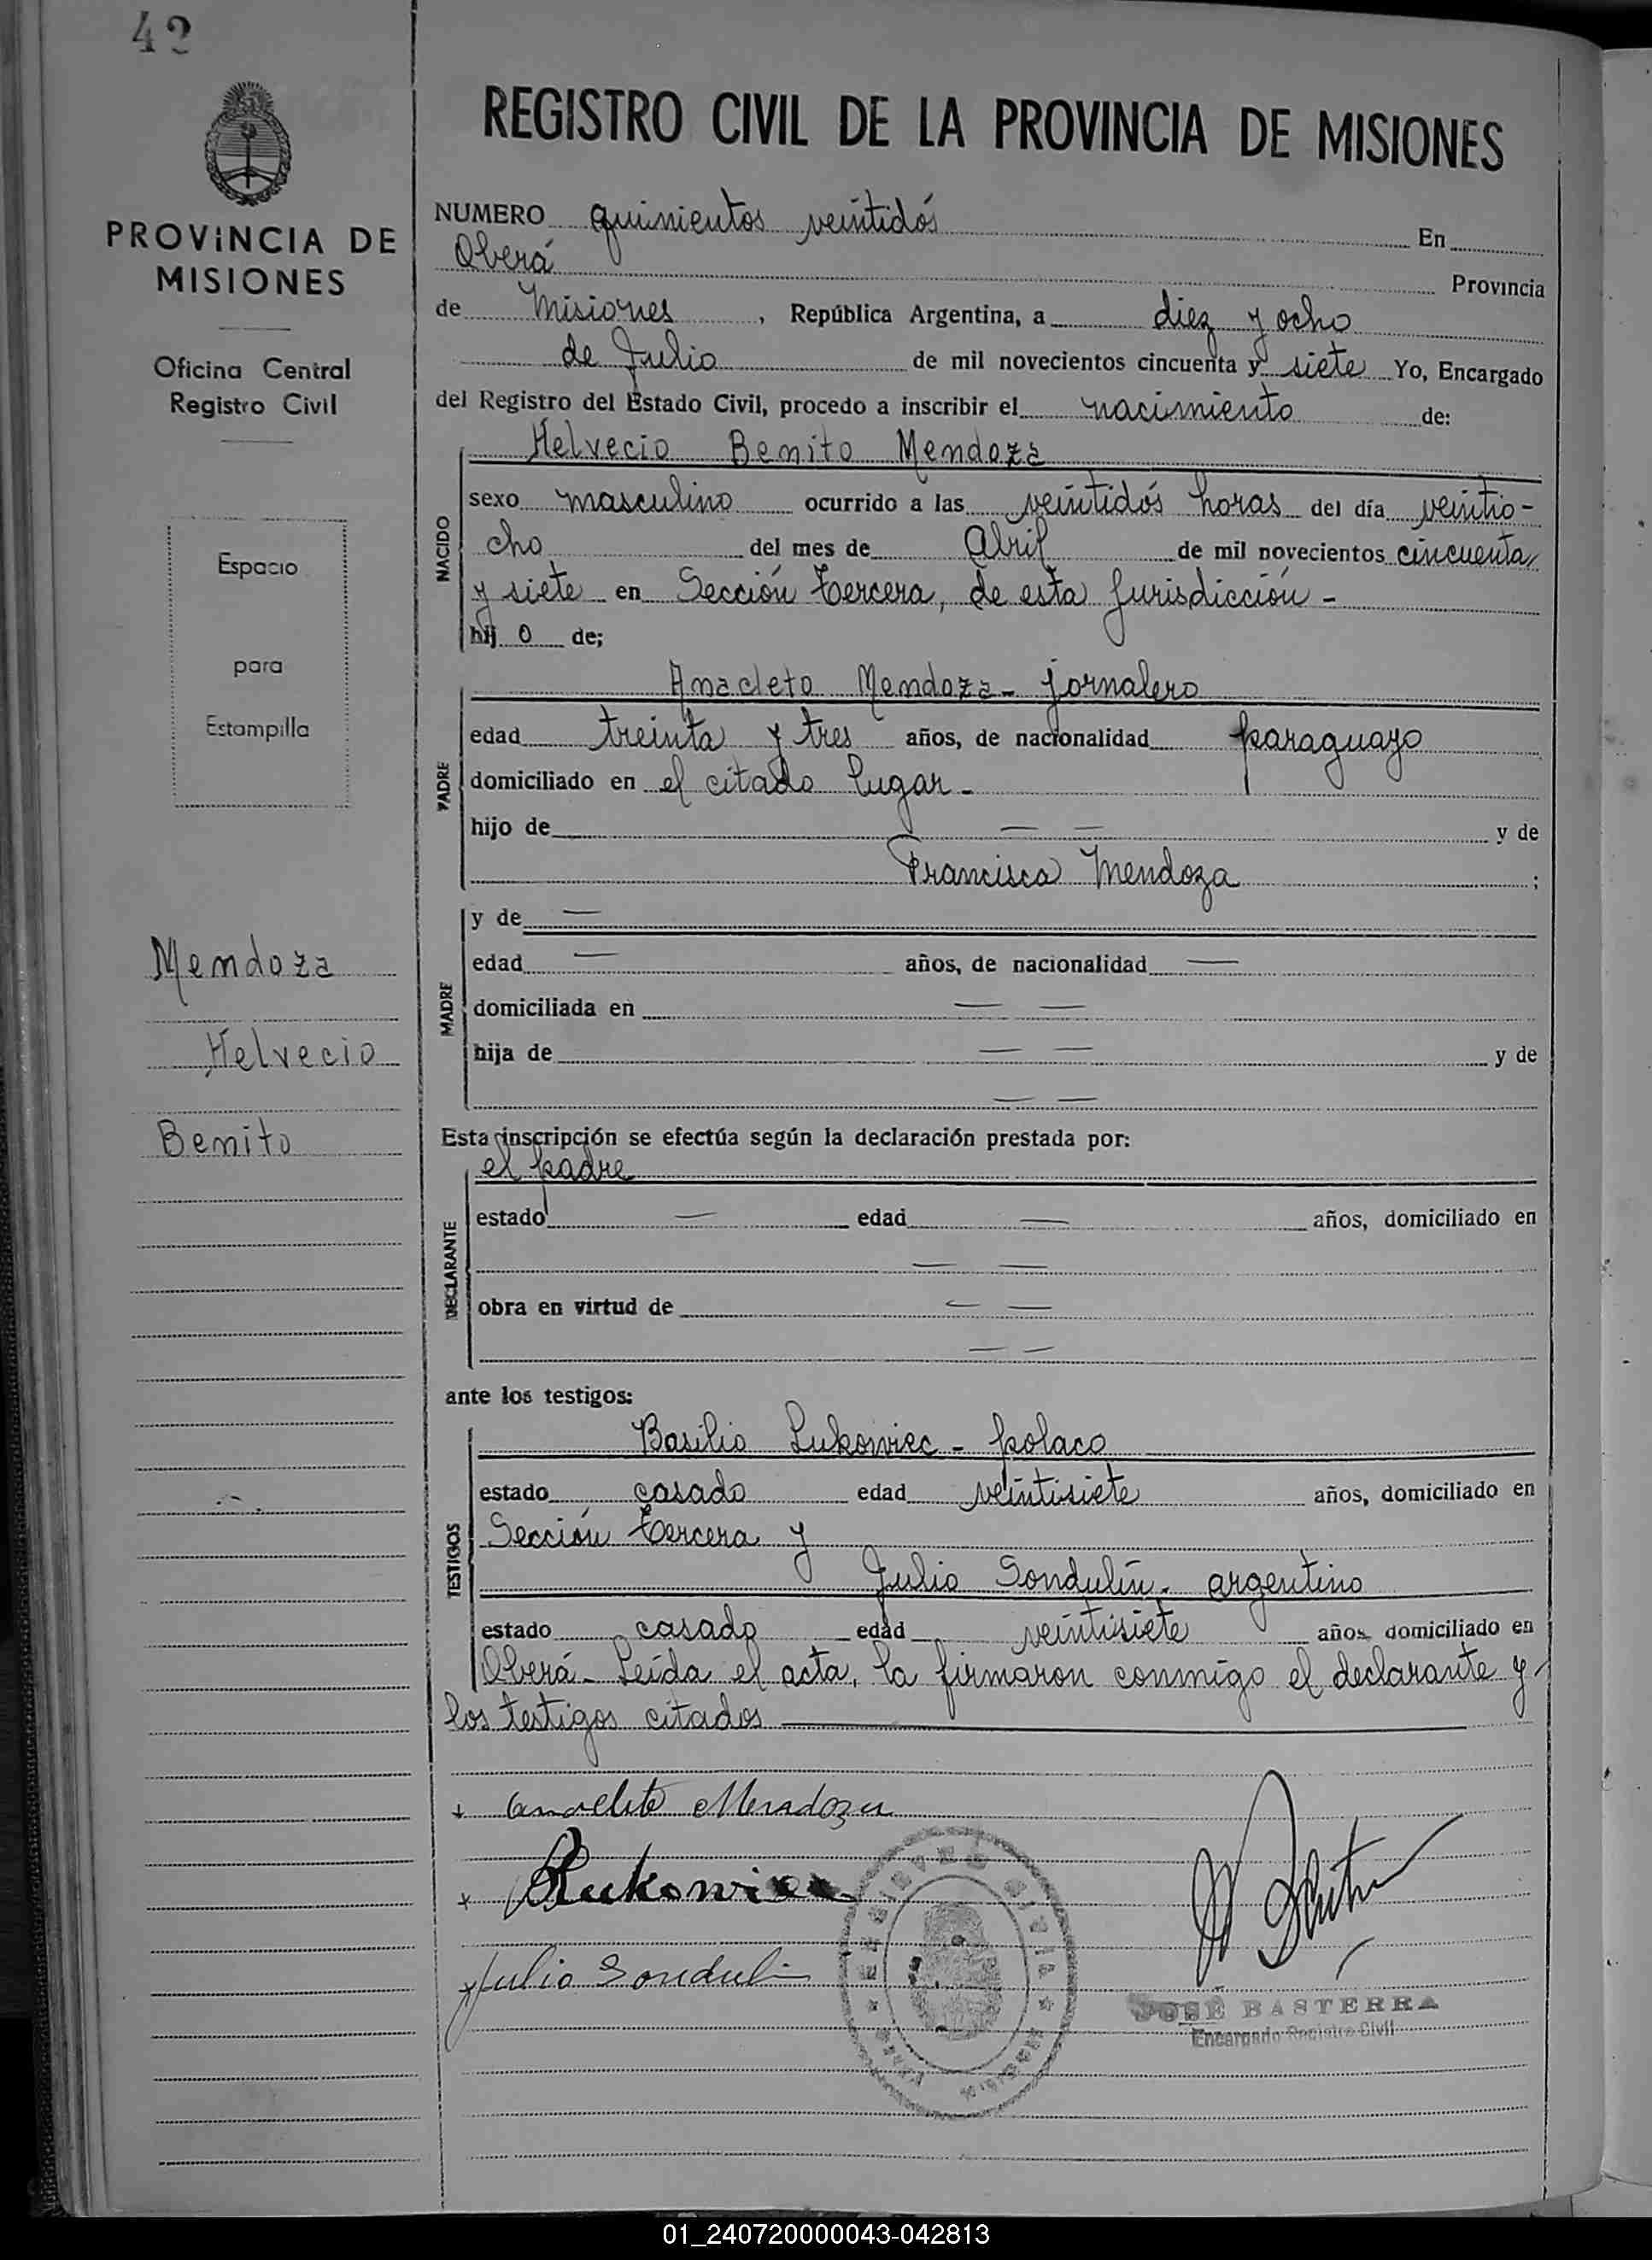 42
PROVINCIA DE
MISIONES
Oficina Central
Registro Civil
Espacio
para
Estampilla
Mendoza
Helvecio
Benito
REGISTRO CIVIL DE LA PROVINCIA DE MISIONES
NUMERO quinientos veintidós En
Oberá Provincia
de Misiones, República Argentina, a diez y ocho
de Julio de mil novecientos cincuenta y siete Yo, Encargado
del Registro del Estado Civil, procedo a inscribir el nacimiento de:
Helvecio Benito Mendoza
NACIDO
sexo masculino ocurrido a las veintidós horas del día veintio-
cho del mes de Abril de mil novecientos cincuenta
y siete en Sección tercera, de esta jurisdicción -
hij o de;
Anacleto Mendoza - jornalero
PADRE
edad treinta y tres años, de nacionalidad paraguayo
domiciliado en el citado lugar -
hijo de — — y de
Francisca Mendoza ;
MADRE
y de —
edad — años, de nacionalidad —
domiciliada en — —
hija de — — y de
— —
Esta inscripción se efectúa según la declaración prestada por:
el padre
DECLARANTE
estado — edad — años, domiciliado en
— —
obra en virtud de — —
— —
ante los testigos:
Basilio Lukowiec - polaco
TESTIGOS
estado casado edad veintisiete años, domiciliado en
Sección tercera y
Julio Sondulín - argentino
estado casado edad veintisiete años domiciliado en
Oberá - Leída el acta, la firmaron conmigo el declarante y
los testigos citados
Anacleto Mendoza
Lukowiec
Julio Sondulin
JOSÉ BASTERRA
Encargado Registro Civil
01_240720000043-042813